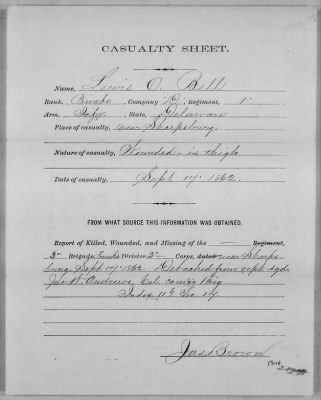 CASUALTY SHEET.
Name, Lewis O. Bell
Rank, Private, Company D, Regiment, 1"
Arm, Infy, State, Delaware
Place of casualty, near Sharpsburg,
Nature of casualty, Wounded - in thigh
Date of casualty, Sept 17" 1862.
FROM WHAT SOURCE THIS INFORMATION WAS OBTAINED.
Report of Killed, Wounded, and Missing of the — Regiment,
3" Brigade, Division 2" Corps, dated near Sharps-
burg, Sept 17" 1862.
Jno. W. Andrews, Col. com'dg Brig
Jas Brown
Clerk.